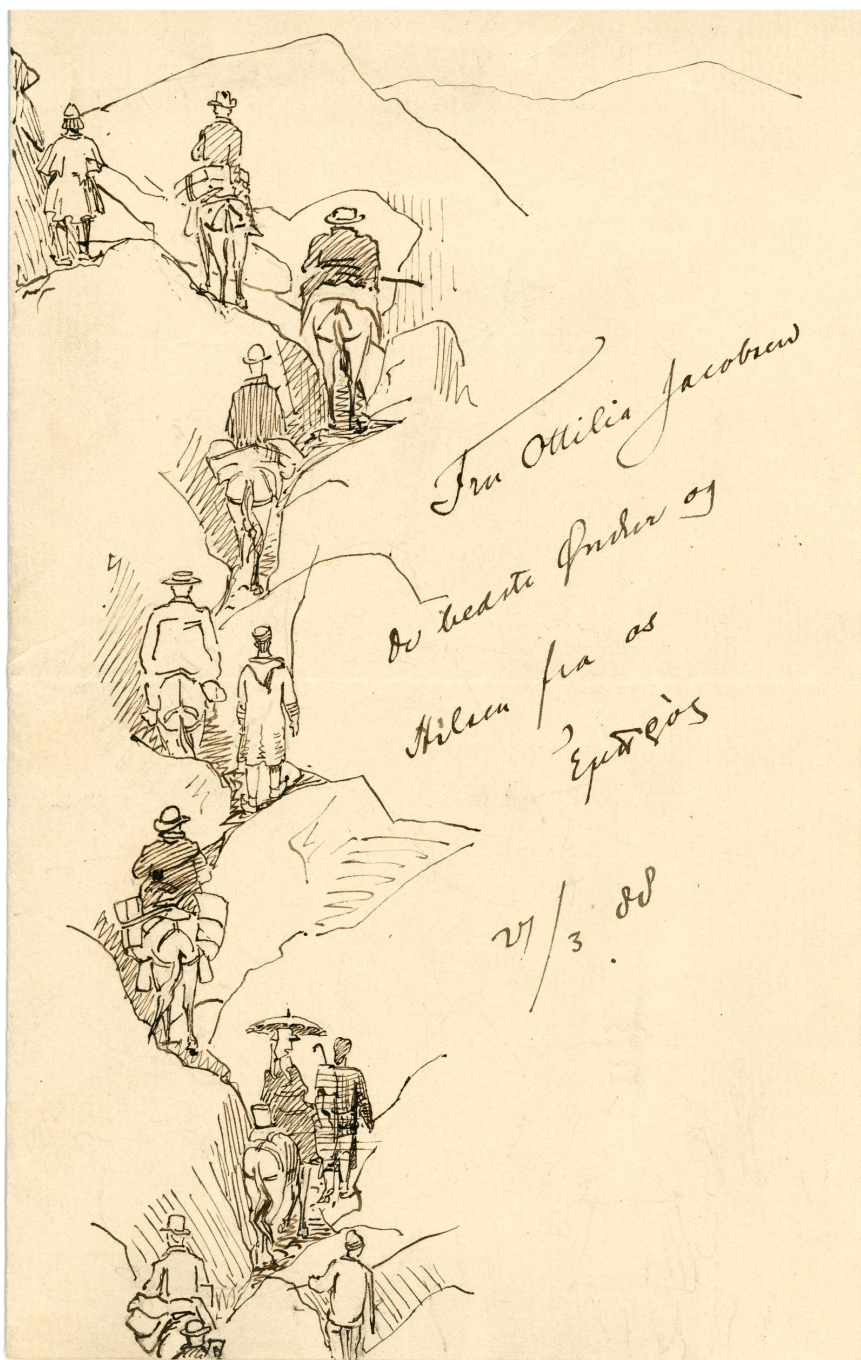 Fru Ottilia Jacobsen
De bedste Ønsker og
Hilsen fra os
Ἐμπρὸς
27/3 88